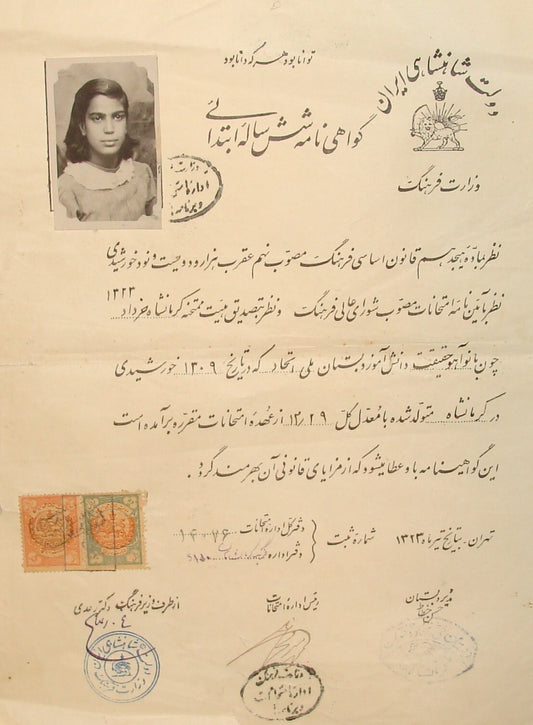 توانا بود هر که دانا بود
دولت شاهنشاهی ایران
گواهی نامه شش ساله ابتدائی
وزارت فرهنگ
نظر بماده هیجدهم قانون اساسی فرهنگ مصوب نهم عقرب هزار و دویست و نود خورشیدی
نظر بآئین نامه امتحانات مصوب شورای عالی فرهنگ و نظر بتصدیق هیئت ممتحنه کرمانشاه خرداد ۱۳۲۳
چون بانو آهو حقیقت دانش آموز دبستان ملی اتحاد که در تاریخ ۱۳۰۹ خورشیدی
در کرمانشاه متولد شده با معدل کل ۱۲/۲۹ از عهده امتحانات مقرره برآمده است
این گواهینامه باو عطا میشود که از مزایای قانونی آن بهرمند گردد.
تهران - بتاریخ تیر ماه ۱۳۲۳ شماره ثبت
دفتر کل اداره امتحانات
دفتر اداره فرهنگ
مدیر دبستان
رئیس اداره امتحانات
از طرف وزیر فرهنگ دکتر
وزارت فرهنگ